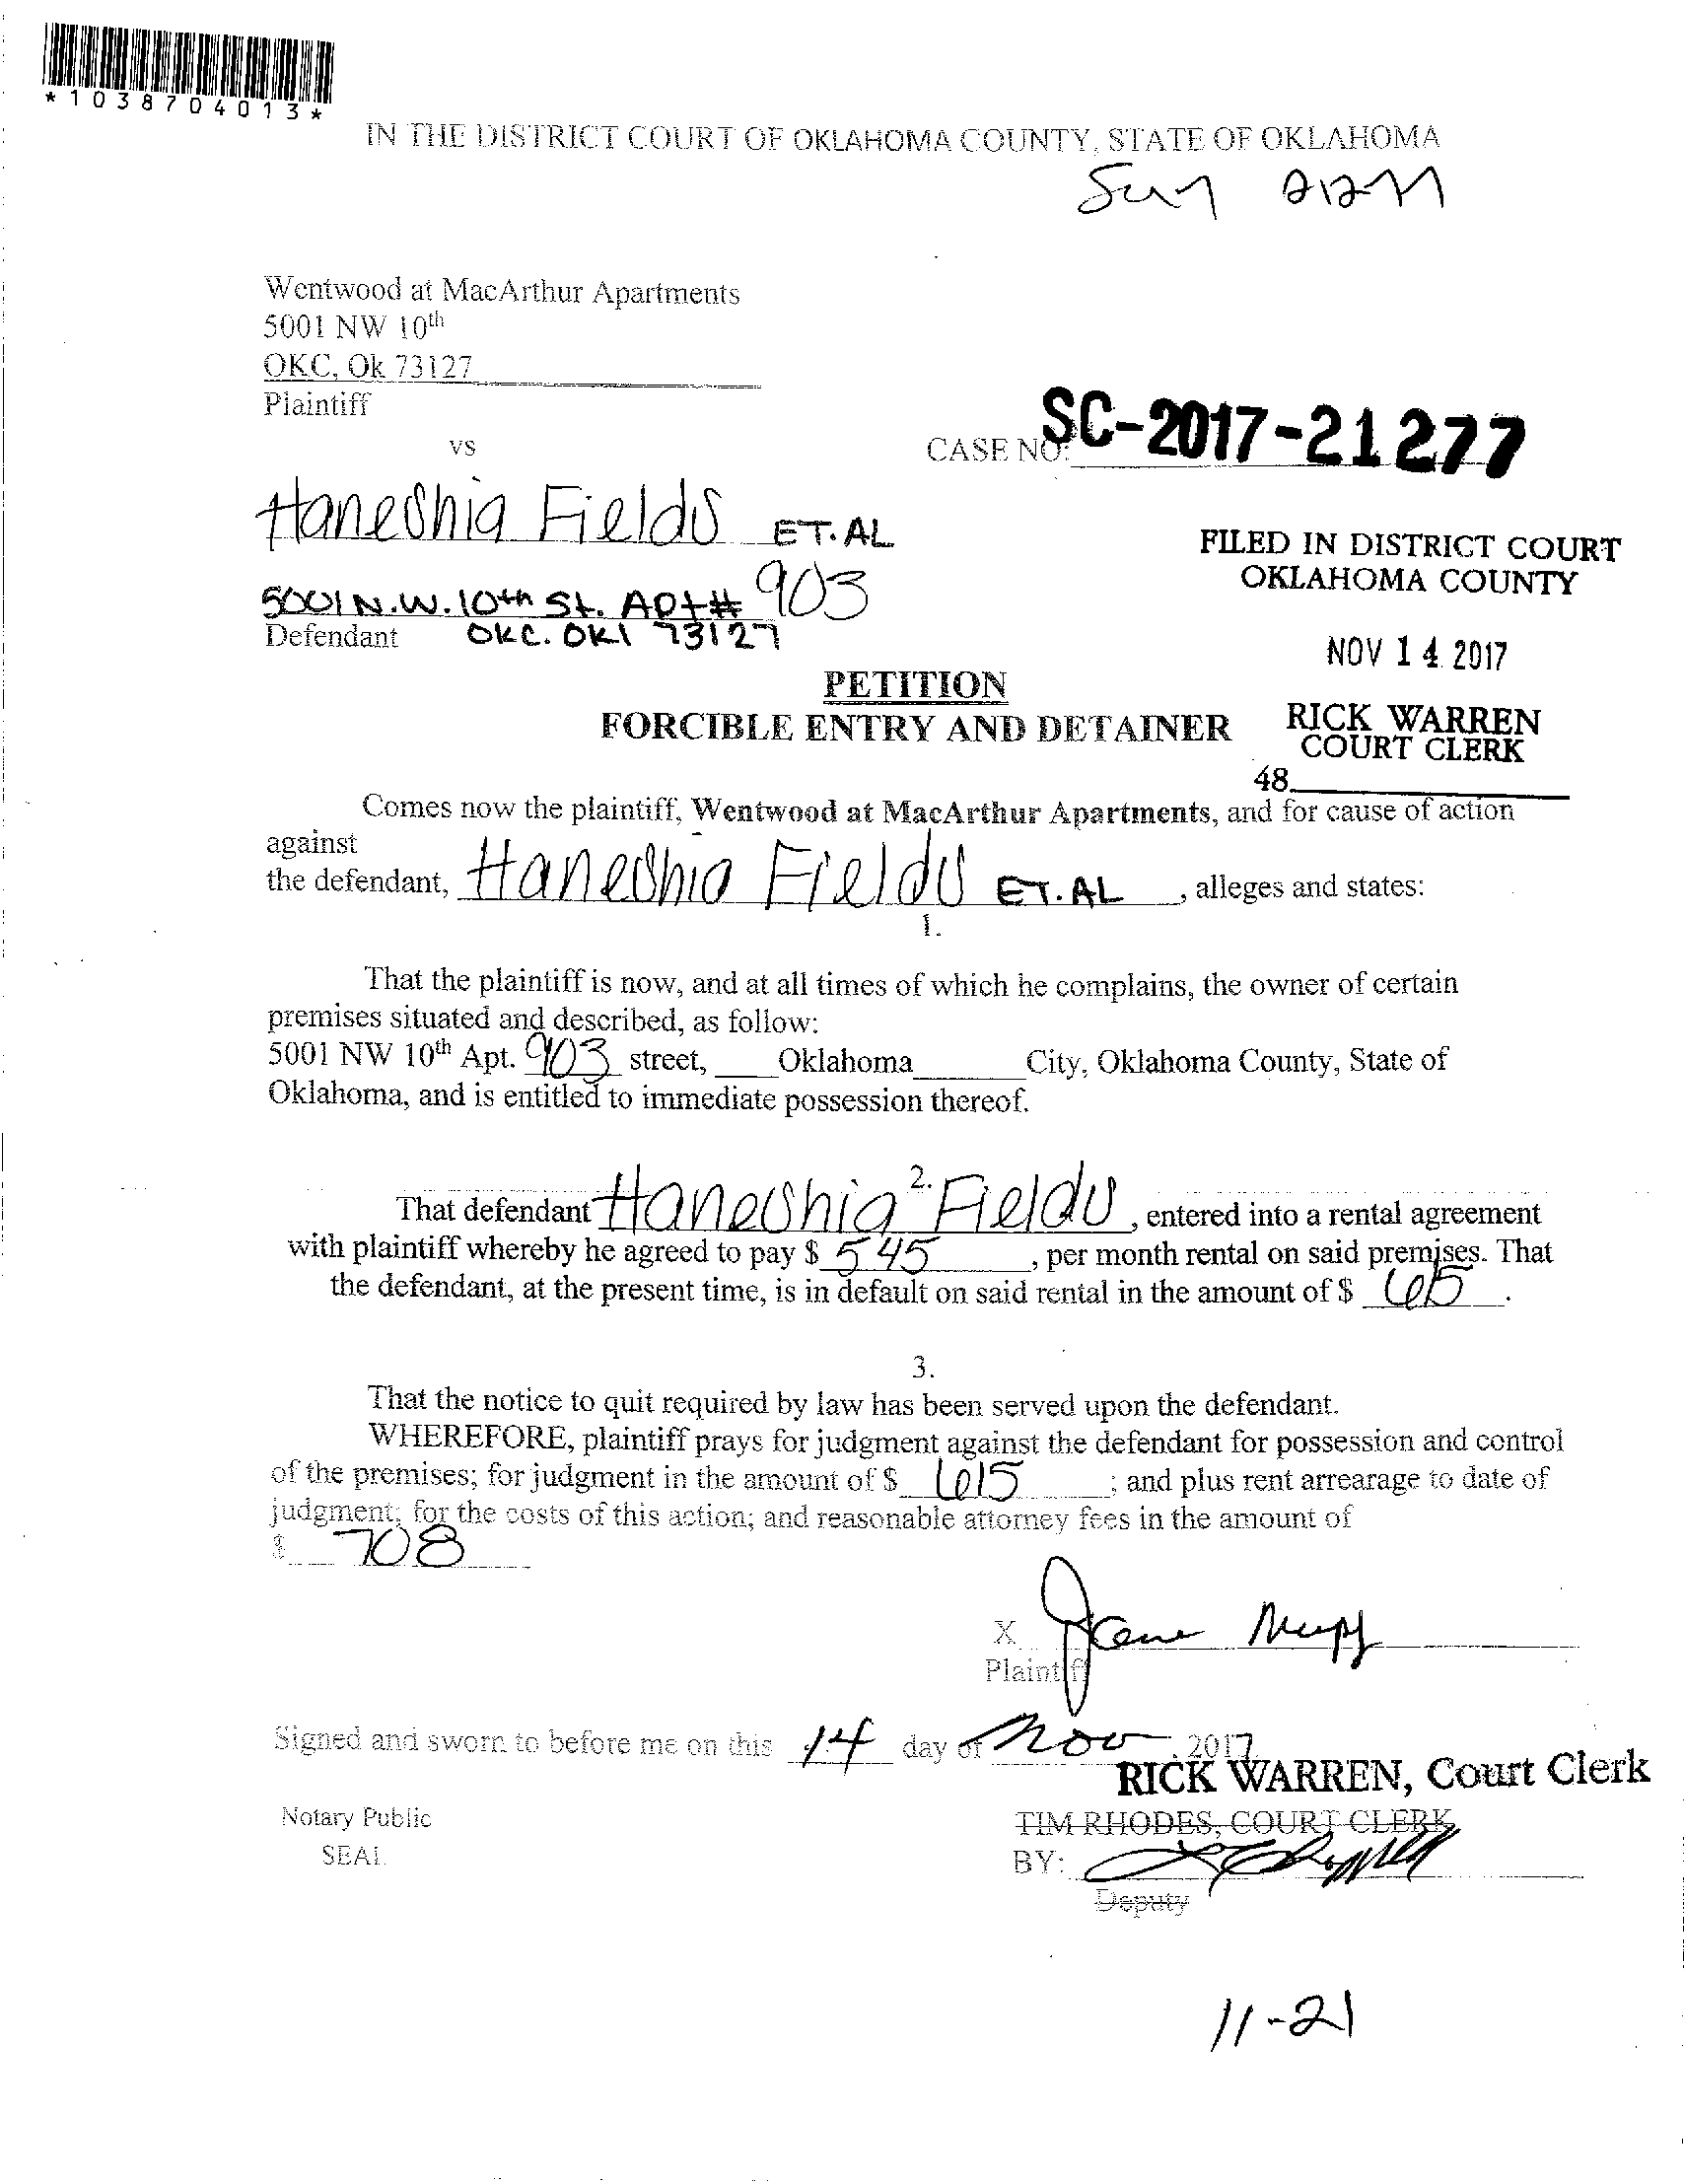 *1038704013*
IN THE DISTRICT COURT OF OKLAHOMA COUNTY, STATE OF OKLAHOMA
Wentwood at MacArthur Apartments
5001 NW 10th
OKC, Ok 73127
Plaintiff
vs
CASE NO: SC-2017-21277
Haneshia Fields ET.AL
FILED IN DISTRICT COURT
OKLAHOMA COUNTY
5001 N.W. 10th St. Apt# 903
Defendant OKC. OKl 73127
NOV 14 2017
PETITION
FORCIBLE ENTRY AND DETAINER
RICK WARREN
COURT CLERK
48
Comes now the plaintiff, Wentwood at MacArthur Apartments, and for cause of action
against
the defendant, Haneshia Fields ET.AL, alleges and states:
1.
That the plaintiff is now, and at all times of which he complains, the owner of certain
premises situated and described, as follow:
5001 NW 10th Apt. 903 street, Oklahoma City, Oklahoma County, State of
Oklahoma, and is entitled to immediate possession thereof.
2.
That defendant Haneshia Fields, entered into a rental agreement
with plaintiff whereby he agreed to pay $ 545, per month rental on said premises. That
the defendant, at the present time, is in default on said rental in the amount of $ 615.
3.
That the notice to quit required by law has been served upon the defendant.
WHEREFORE, plaintiff prays for judgment against the defendant for possession and control
of the premises; for judgment in the amount of $ 615; and plus rent arrearage to date of
judgment; for the costs of this action; and reasonable attorney fees in the amount of
$ 708
X
Plaintiff
Signed and sworn to before me on this 14 day of Nov, 2017.
RICK WARREN, Court Clerk
Notary Public
TIM RHODES, COURT CLERK
SEAL
BY:
Deputy
11-21